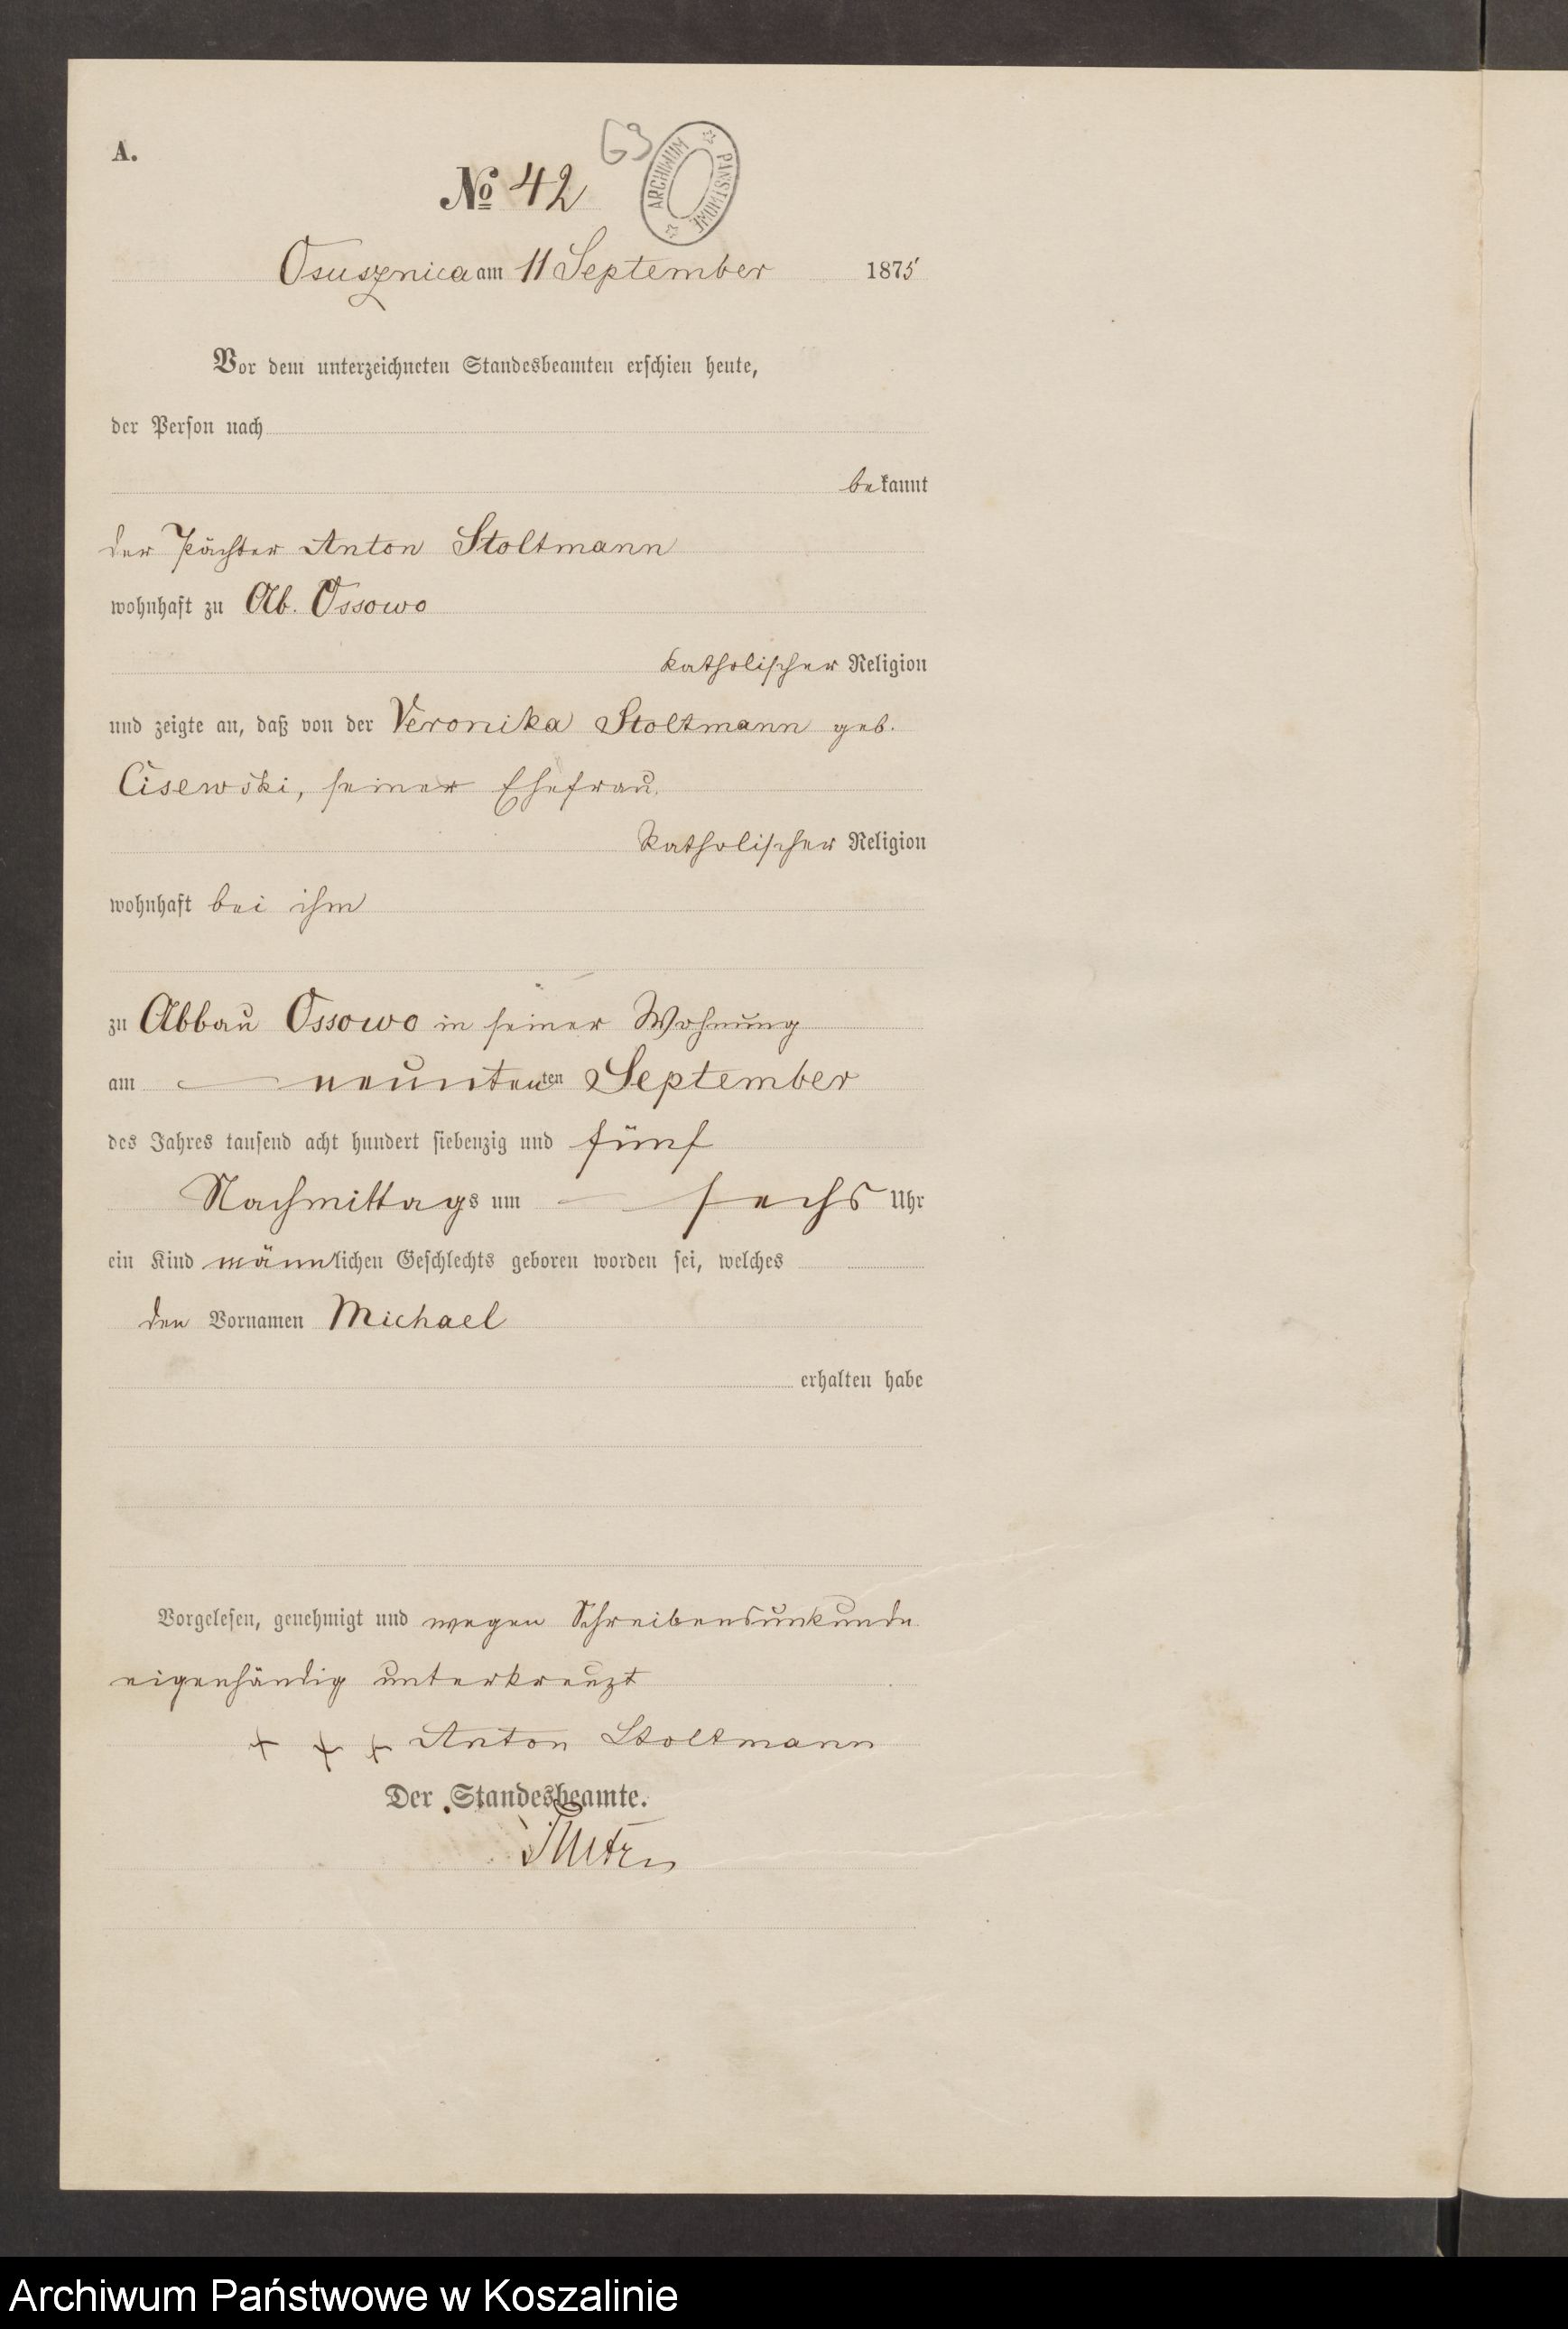 A.
63
ARCHIWUM PAŃSTWOWE
№ 42
Osusznica am 11 September 1875
Vor dem unterzeichneten Standesbeamten erschien heute,
der Person nach
bekannt
der Pächter Anton Stoltmann
wohnhaft zu Ab. Ossowo
katholischer Religion
und zeigte an, daß von der Veronika Stoltmann geb.
Cisewski, seiner Ehefrau
katholischer Religion
wohnhaft bei ihm
zu Abbau Ossowo in seiner Wohnung
am neunten ten September
des Jahres tausend acht hundert siebenzig und fünf
Nachmittags um sechs Uhr
ein Kind männlichen Geschlechts geboren worden sei, welches
den Vornamen Michael
erhalten habe
Vorgelesen, genehmigt und wegen Schreibensunkunde
eigenhändig unterkreuzt
+ + + Anton Stoltmann
Der Standesbeamte.
Archiwum Państwowe w Koszalinie